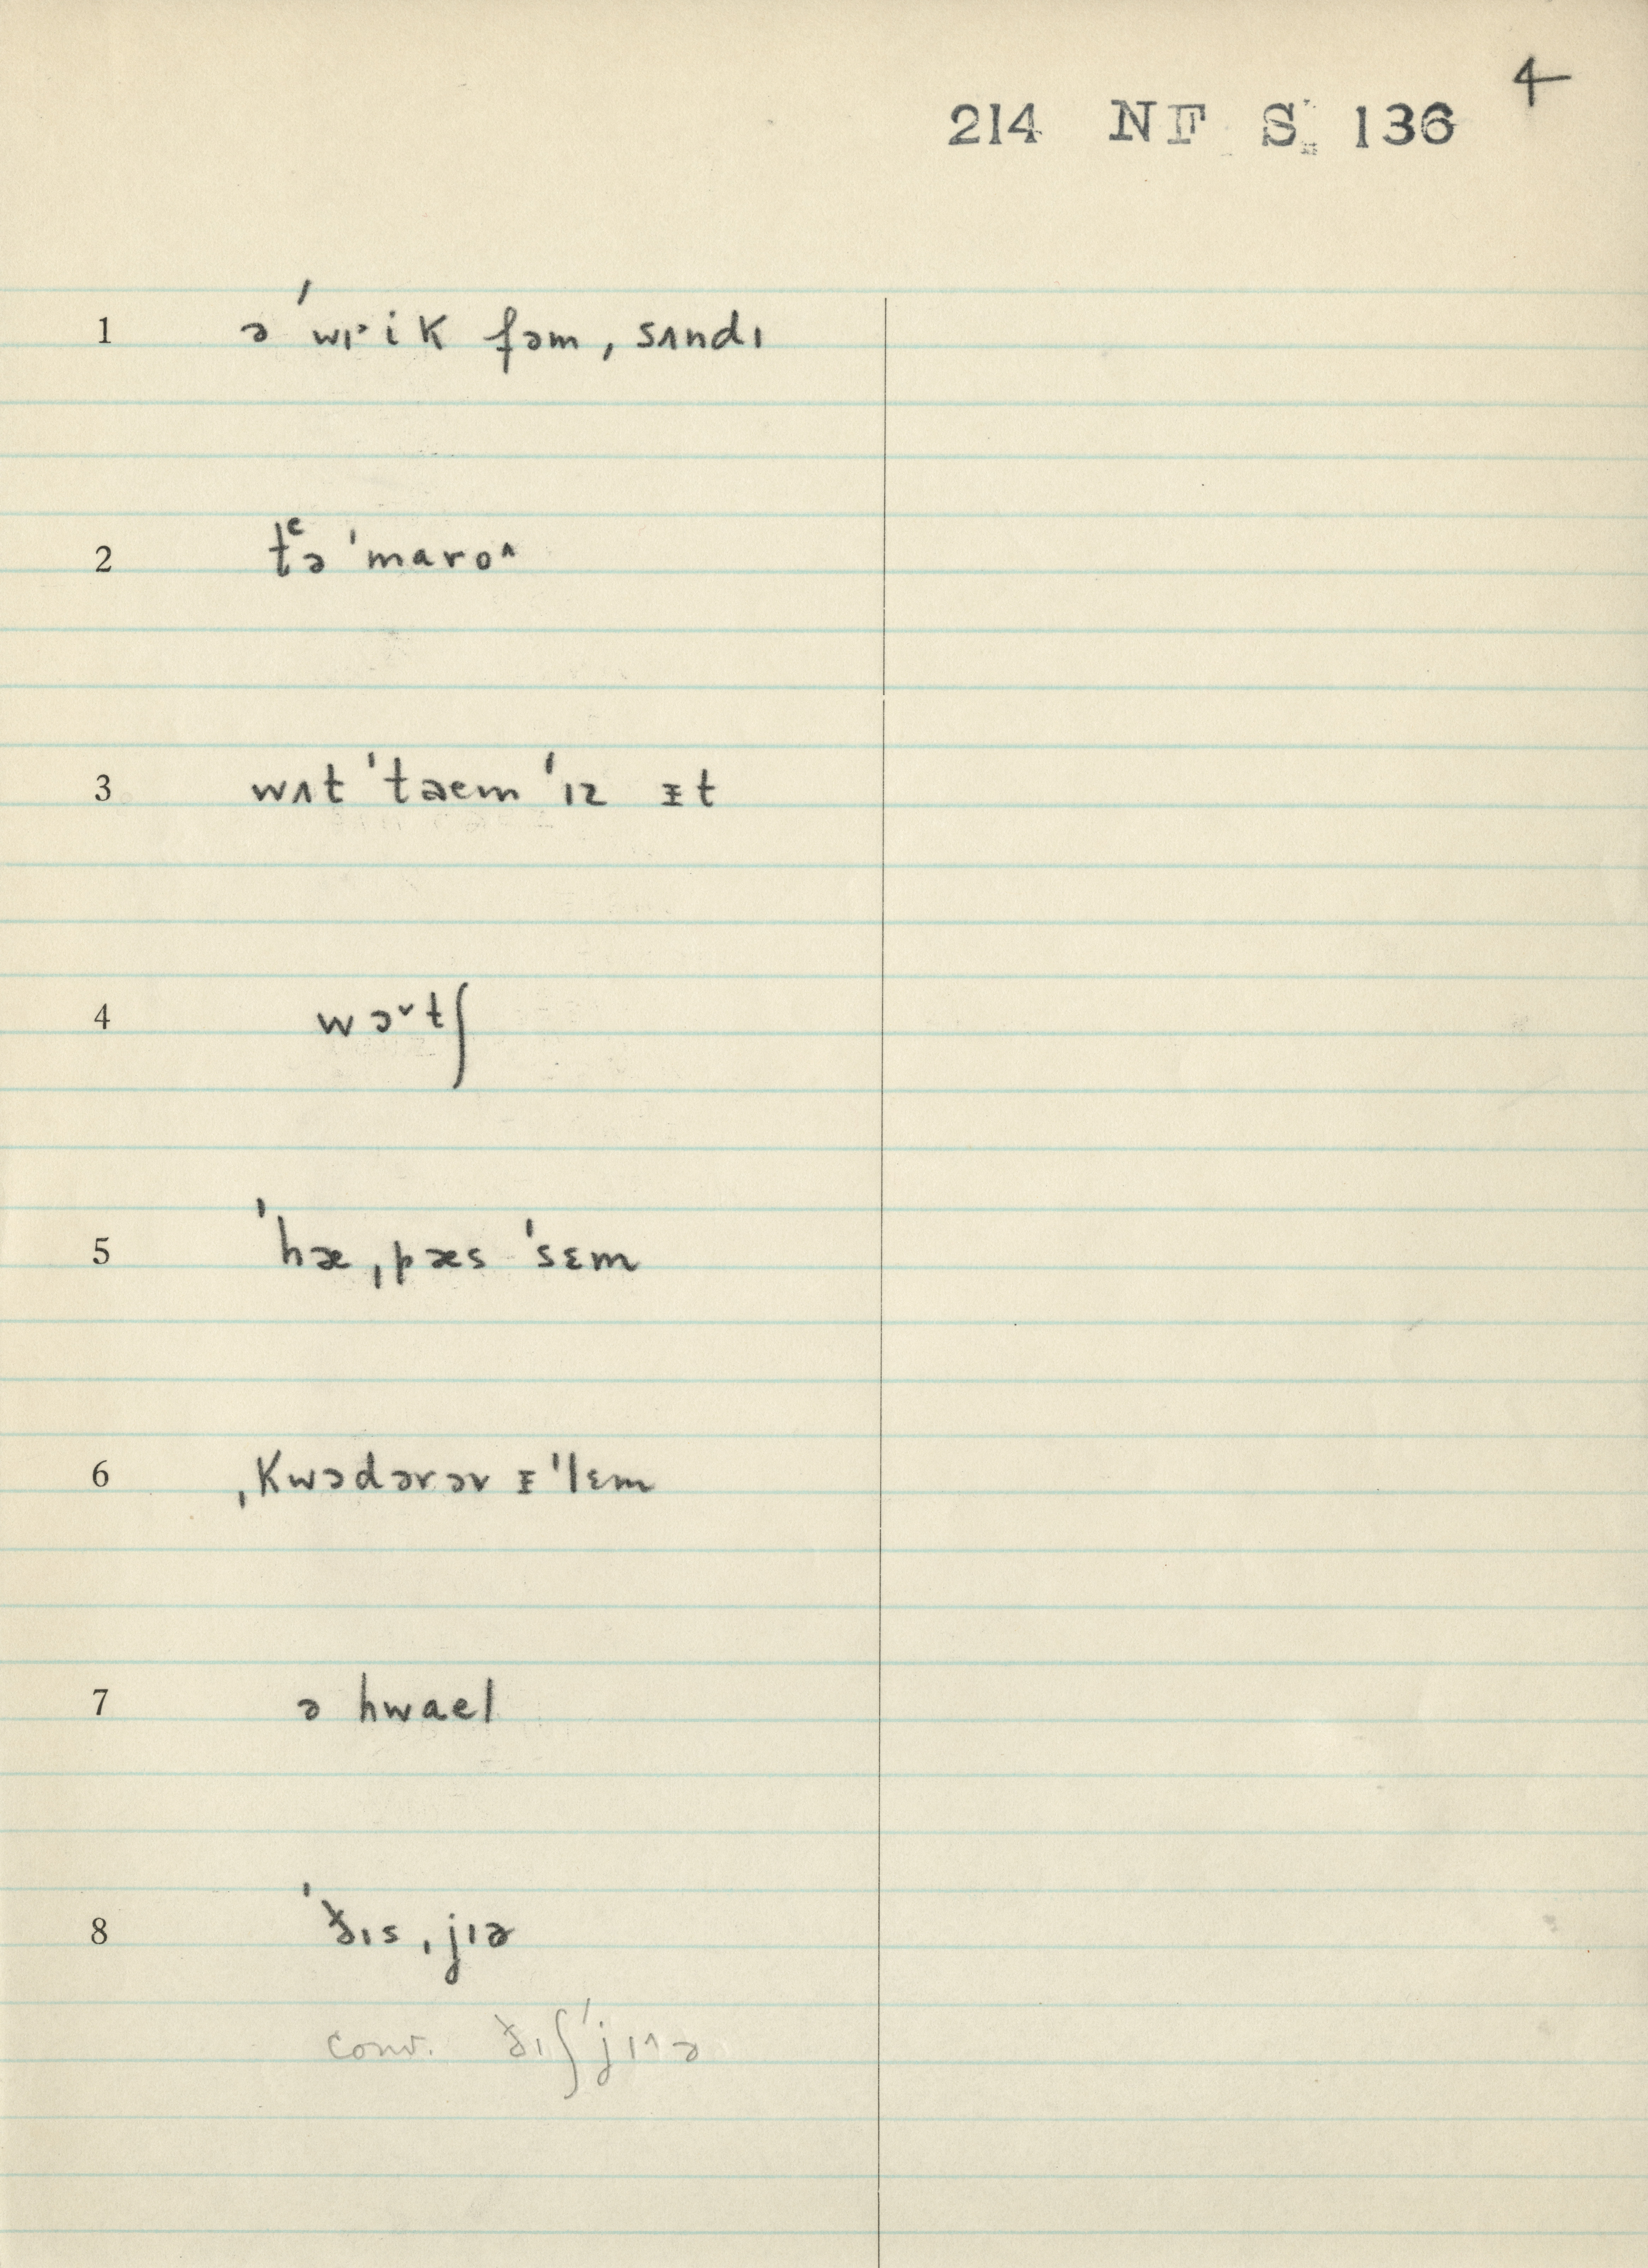 4
214 NF S. 136
1 ə ˈwɪ˞ik fəm, sʌndɪ
2 tᶜə ˈmaro^
3 wʌt ˈtəem ˈɪz ᵻt
4 wɔ˅tʃ
5 ˈhæ ˌpæs ˈsɛm
6 ˌkwɔdərər ᵻˈlɛm
7 ə hwael
8 ˈðɪs ˌjɪə
conv. ðɪʃˈjɪ^ə